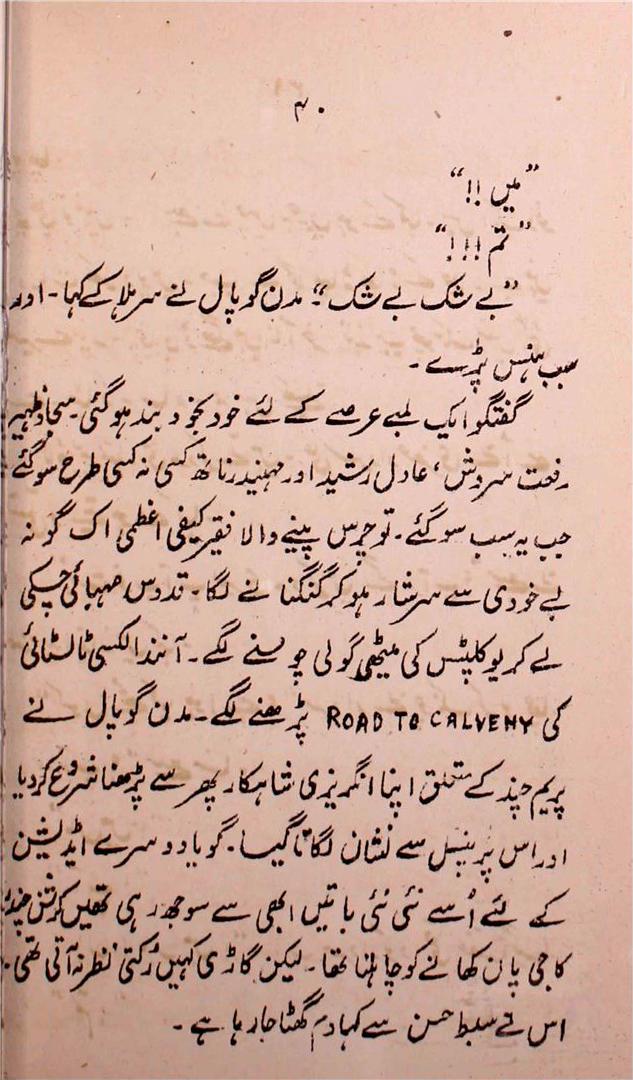 ۴۰
"میں !!"
"تم !!!"
"بے شک بے شک"۔ مدن گوپال نے سر ہلا کے کہا۔ اور
سب ہنس پڑے۔
گفتگو ایک لمبے عرصے کے لئے خود بخود بند ہو گئی۔ سجاد ظہیر
رفعت سروش، عادل رشید اور مہندر ناتھ کسی نہ کسی طرح سو گئے
جب یہ سب سو گئے۔ تو چرس پینے والا فقیر کیفی اعظمی اک گو نہ
بے خودی سے سرشار ہو کر گنگنا نے لگا۔ قدوس صہبائی چسکی
لے کر یوکلپٹس کی میٹھی گولی چوسنے لگے۔ آنند الکسی ٹالسٹائی
کی ROAD TO CALVENY پڑھنے لگے۔ مدن گوپال نے
پریم چند کے متعلق اپنا انگریزی شاہکار پھر سے پڑھنا شروع کر دیا
اور اس پر پنسل سے نشان لگاتا گیا۔ گویا دوسرے ایڈیشن
کے لئے اُسے نئی نئی باتیں ابھی سے سوجھ رہی تھیں کرشن چندر
کا جی پان کھانے کو چاہتا تھا۔ لیکن گاڑی کہیں رُکتی نظر نہ آتی تھی۔
اس نے سبط حسن سے کہا دم گھٹا جا رہا ہے۔